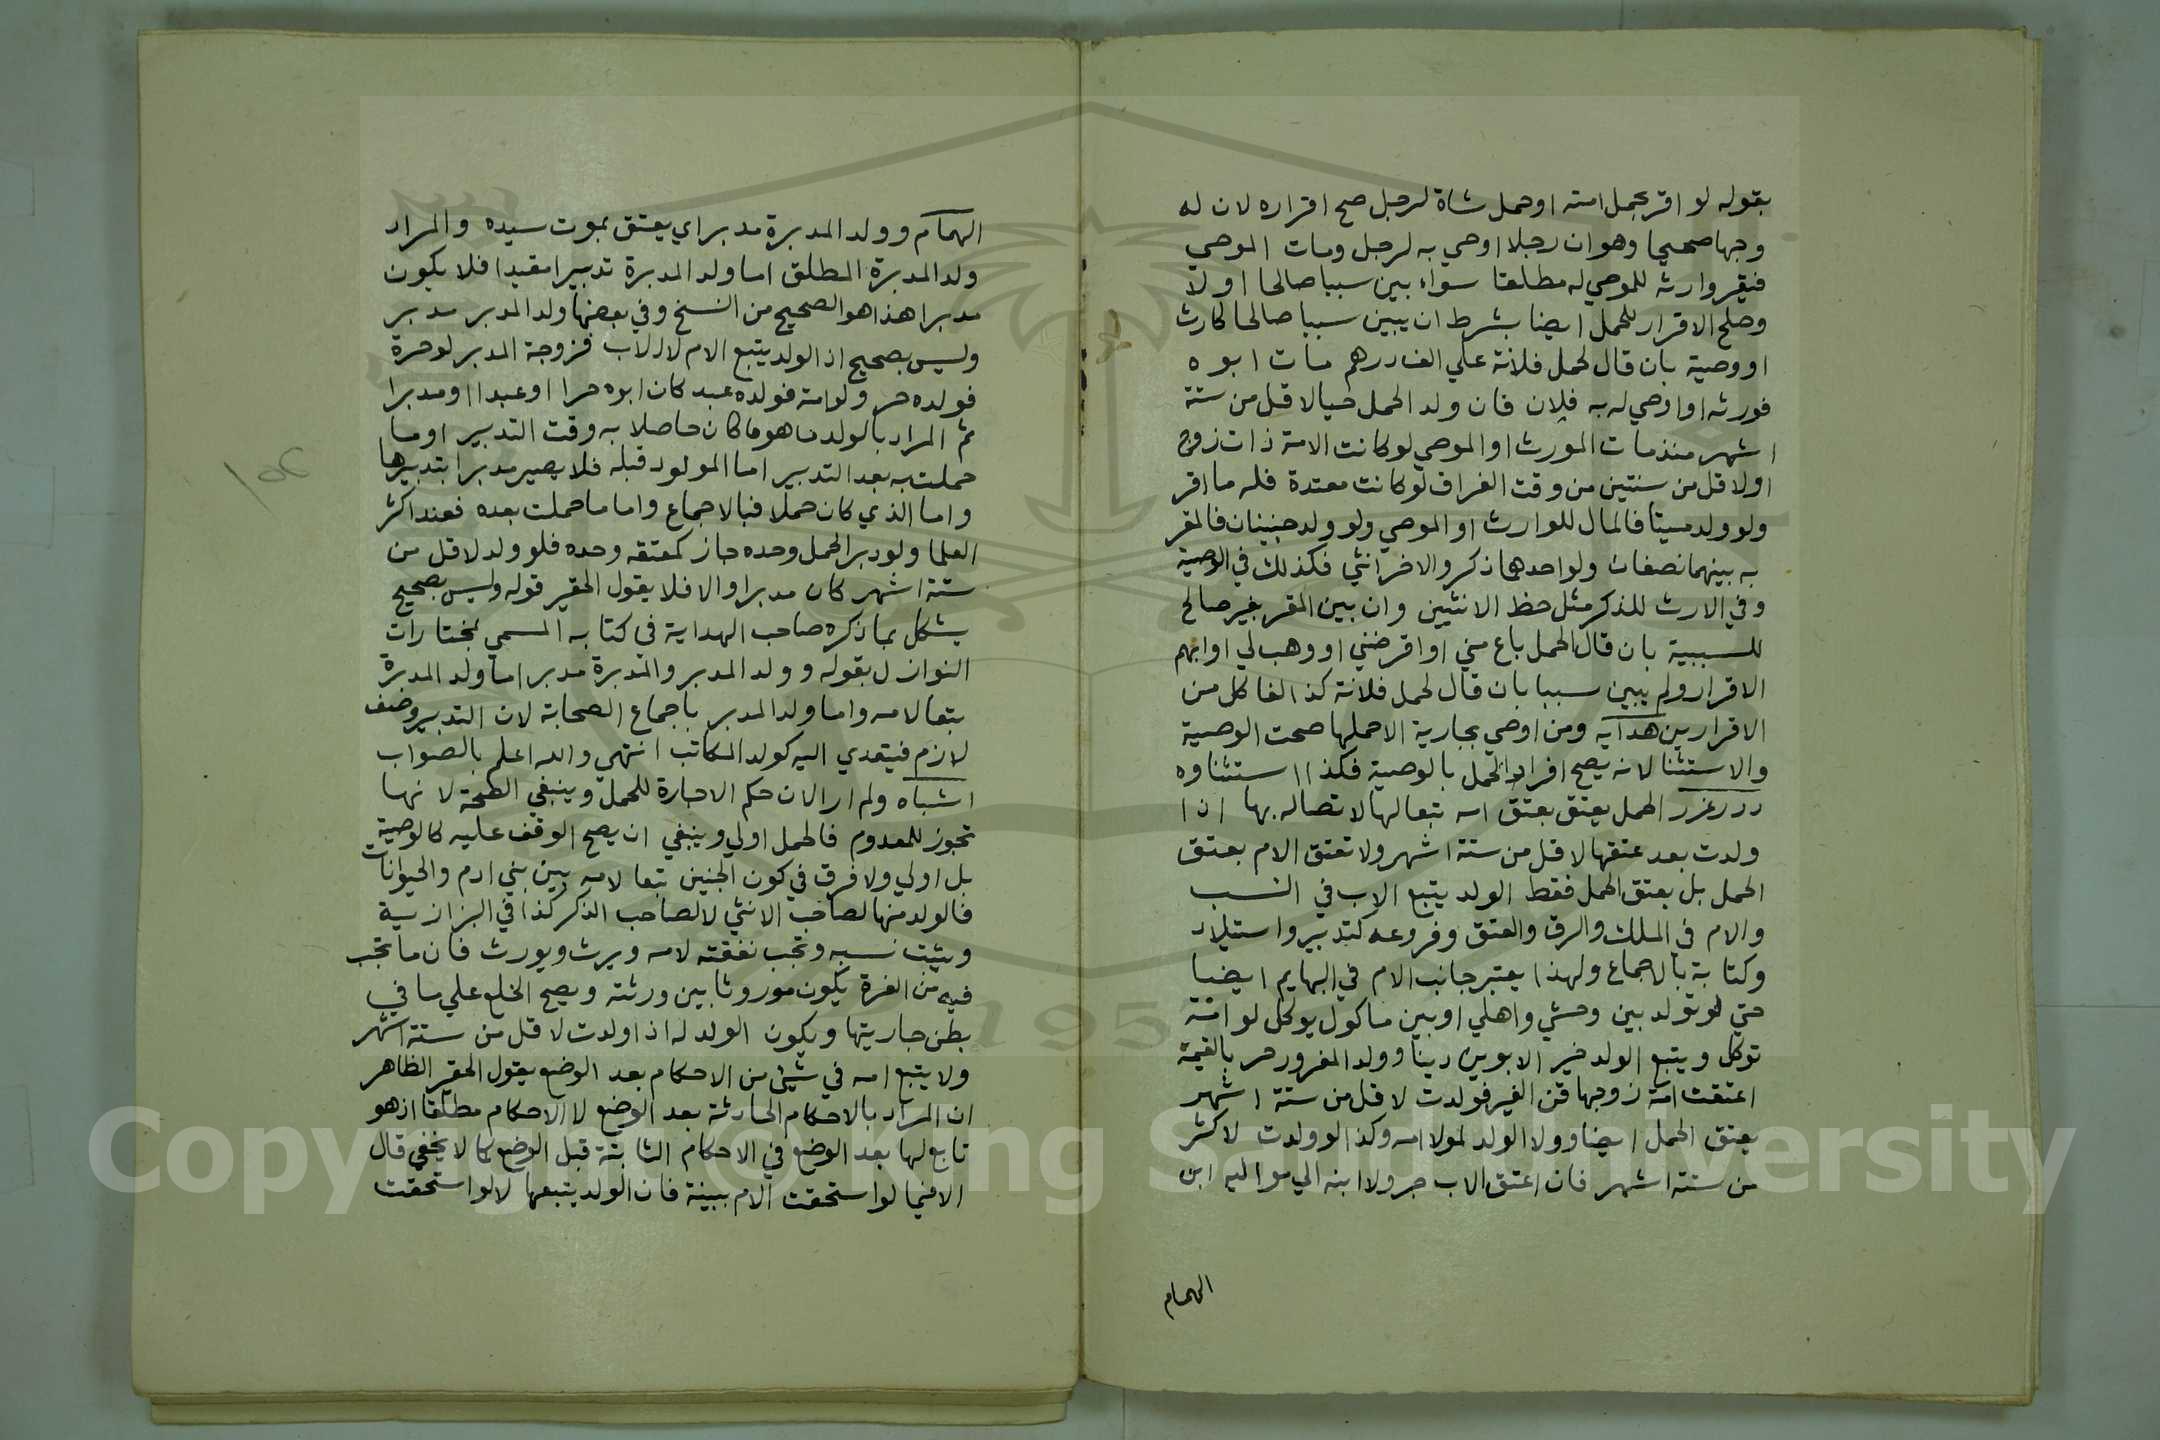 بقوله لو اقر بحمل امته او حمل شاة لرجل صح اقراره لان له
وجها صحيحا وهو ان رجلا اوصي به لرجل ومات الموصي
فيقر وارثه للموصي له مطلقا سواء بين سببا صالحا او لا
وصلح الاقرار للحمل ايضا بشرط ان يبين سببا صالحا كارث
او وصية بان قال لحمل فلانة علي الف درهم مات ابوه
فورثه او اوصي له به فلان فان ولد الحمل حيا لاقل من ستة
اشهر منذ مات المورث او الموصي لو كانت الامة ذات زوج
او لاقل من سنتين من وقت الفراق لو كانت معتدة فله ما اقر
ولو ولد ميتا فالمال للوارث او الموصي ولو ولد جنينان فالمقر
به بينهما نصفان ولو احدهما ذكر والاخر انثي فكذلك في الوصية
وفي الارث للذكر مثل حظ الانثيين وان بين المقر بغير صالح
للسببية بان قال الحمل باع مني او اقرضني او وهب لي او ابهم
الاقرار ولم يبين سببا بان قال لحمل فلانة كذا لغا كل من
الاقرارين هدايه ومن اوصي بجارية الا حملها صحت الوصية
والاستثنا لانه يصح افراد الحمل بالوصية فكذا استثناوه
درر غرر الحمل يعتق بعتق امه تبعا لها لاتصاله بها اذا
ولدت بعد عتقها لاقل من ستة اشهر ولا تعتق الام بعتق
الحمل بل يعتق الحمل فقط الولد يتبع الاب في النسب
والام في الملك والرق والعتق وفروعه كتدبير واستيلاد
وكتابة بالاجماع ولهذا يعتبر جانب الام في البهايم ايضا
حتي لو تولد بين وحشي واهلي او بين ماكول يوكل لو امه
توكل ويتبع الولد خير الابوين دينا وولد المغرور حر بالقيمة
اعتقت امة زوجها قن الغير فولدت لاقل من ستة اشهر
يعتق الحمل ايضا وولا الولد لمولا امه وكذا لو ولدت لاكثر
من ستة اشهر فان اعتق الاب جر ولا ابنه الي مواليه ابن
الهمام
الهمام وولد المدبرة مدبر اي يعتق بموت سيده والمراد
ولد المدبرة المطلق اما ولد المدبرة تدبيرا مقيدا فلا يكون
مدبرا هذا هو الصحيح من النسخ وفي بعضها ولد المدبر مدبر
وليس بصحيح اذ الولد يتبع الام لا الاب فزوجة المدبر لو حرة
فولده حر ولو امة فولده عبد كان ابوه حرا او عبدا او مدبرا
ثم المراد بالولد ما هو ما كان حاصلا به وقت التدبير او ما
حملت به بعد التدبير اما المولود قبله فلا يصير مدبرا بتدبيرها
واما الذي كان حملا فبالاجماع واما ما حملت بعده فعند اكثر
العلما ولو دبر الحمل وحده جاز كعتقه وحده فلو ولد لاقل من
ستة اشهر كان مدبرا والا فلا يقول الحقير قوله وليس بصحيح
يشكل بما ذكره صاحب الهداية في كتابه المسمي بمختارات
النوازل بقوله وولد المدبر والمدبرة مدبر اما ولد المدبرة
تبعا لامه واما ولد المدبر باجماع الصحابة لان التدبير وصف
لازم فيتعدي اليه كولد المكاتب انتهي والله اعلم بالصواب
اشباه ولم ار الان حكم الاجارة للحمل وينبغي الصحة لانها
تجوز للمعدوم فالحمل اولي وينبغي ان يصح الوقف عليه كالوصية
بل اولي ولا فرق في كون الجنين تبعا لامه بين بني ادم والحيوانات
فالولد منها لصاحب الانثي لا لصاحب الذكر كذا في البزازية
ويثبت نسبه وتجب نفقته لامه ويرث ويورث فان ما يجب
فيه من الغرة يكون موروثا بين ورثته ويصح الخلع علي ما في
بطن جاريتها ويكون الولد له اذا ولدت لاقل من ستة اشهر
ولا يتبع امه في شيئ من الاحكام بعد الوضع يقول الحقير الظاهر
ان المراد بالاحكام الحادثة بعد الوضع لا الاحكام مطلقا اذ هو
تابع لها بعد الوضع في الاحكام الثابتة قبل الوضع كما لا يخفي قال
الا فيما لو استحقت الام ببينة فان الولد يتبعها لا لو استحقت
Copyright © King Saud University
195